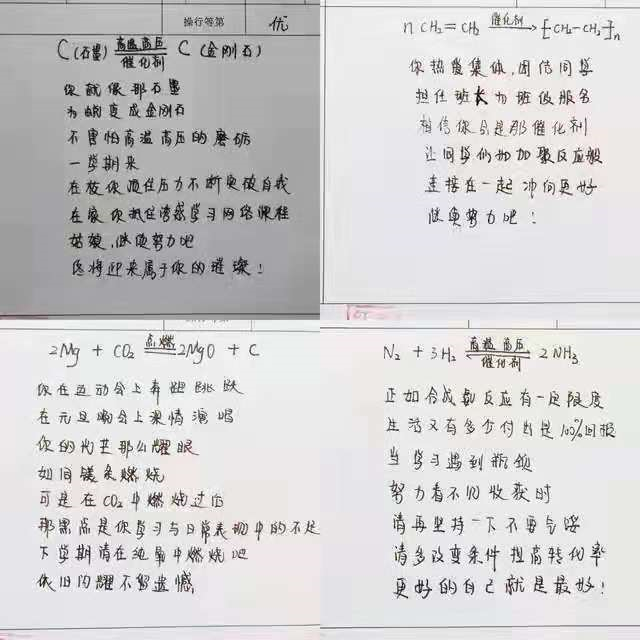 操行等第 优
C (石墨) 高温高压 催化剂 C (金刚石)
你就像那石墨
为蜕变成金刚石
不害怕高温高压的磨砺
一学期来
在校你顶住压力不断突破自我
在家你抵住诱惑学习网络课程
姑娘,继续努力吧
终将迎来属于你的璀璨!
n CH₂=CH₂ 催化剂 → [CH₂-CH₂]n
你热爱集体,团结同学
担任班长为班级服务
相信你会是那催化剂
让同学们如加聚反应般
连接在一起冲向更好
继续努力吧!
操行等第
2Mg + CO₂ 点燃 2MgO + C
你在运动会上奔跑跳跃
在元旦晚会上深情演唱
你的光芒那么耀眼
如同镁条燃烧
可是在CO₂中燃烧过后
那黑点是你学习与日常表现中的不足
下学期请在纯氧中燃烧吧
依旧闪耀不留遗憾
N₂ + 3H₂ 高温高压 催化剂 2NH₃
正如合成氨反应有一定限度
生活又有多少付出是100%回报
当学习遇到瓶颈
努力看不见收获时
请再坚持一下不要气馁
请多改变条件提高转化率
更好的自己就是最好!